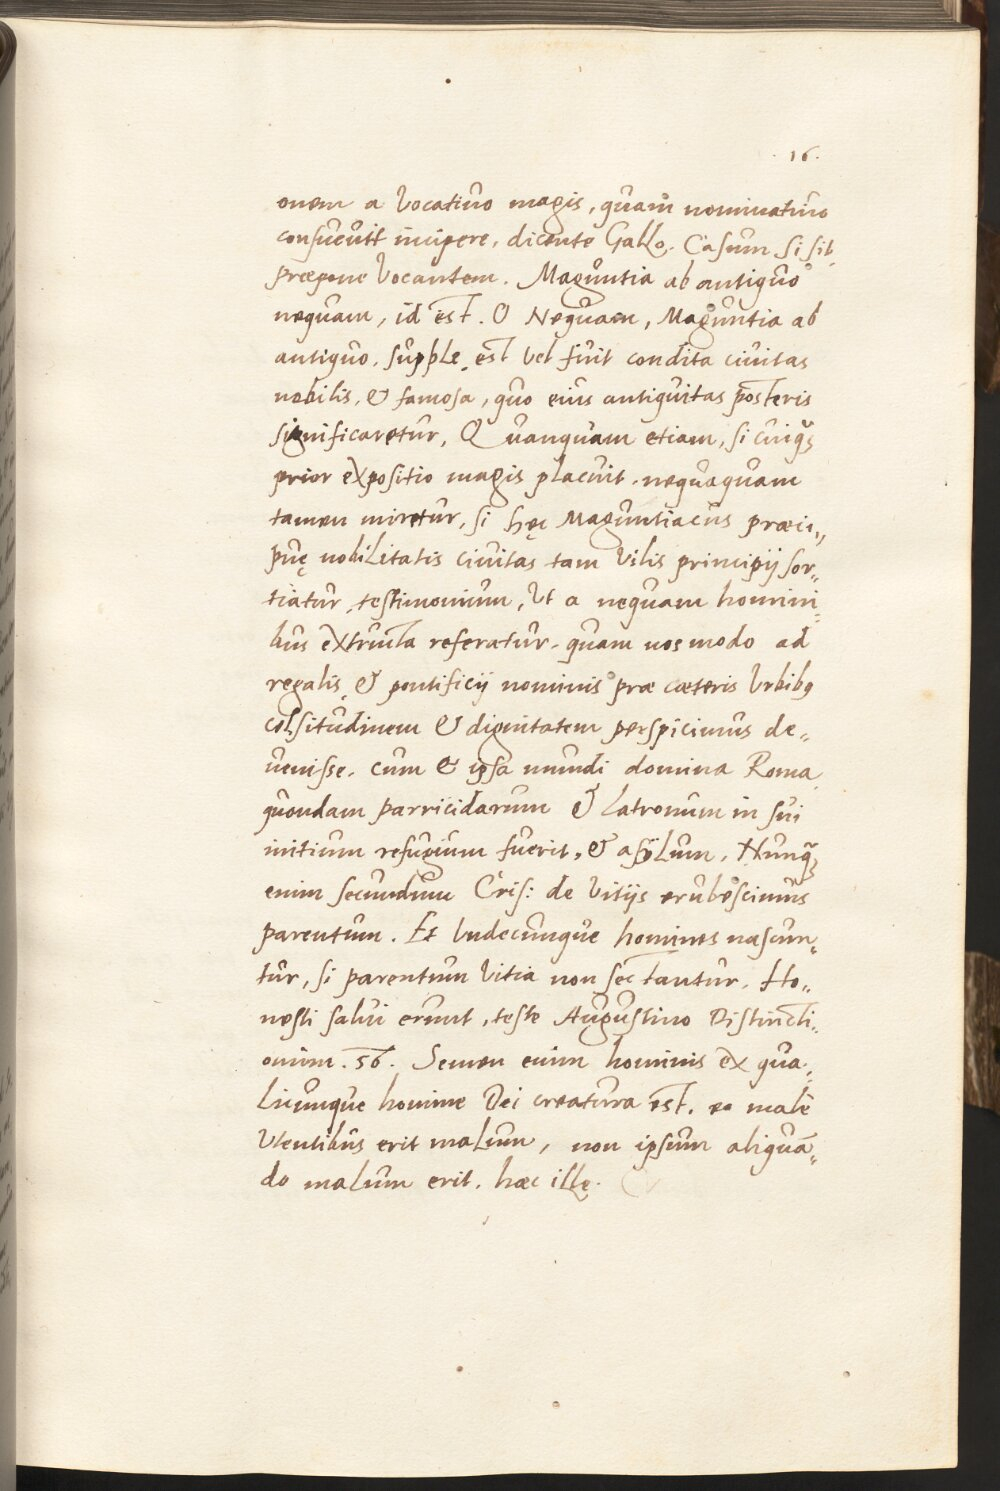 .16.
onem a Vocativo magis, quam nominativo
consuevit incipere, dicente Gallo. Casum si sit
præpone Vocantem. Maguntia ab antiquo
nequam, id est. O Nequam, Maguntia ab
antiquo, supple, est vel fuit condita civitas
nobilis, & famosa, quo eius antiquitas posteris
significaretur, Quanquam etiam, si cuiq;
prior expositio magis placuit, nequaquam
tamen miretur, si hęc Maguntiacus præci„
puę nobilitatis civitas tam vilis principij sor„
tiatur, testimonium, Ut a nequam homini„
bus extructa referatur. quam nos modo ad
regalis, & pontificij nominis præ cæteris Urbibq
celsitudinem & dignitatem perspicimus de„
venisse. cum & ipsa mundi domina Roma
quondam parricidarum & latronum in sui
initium refugium fuerit, & asÿlum. Nunq;
enim secundum Cris: de Vitijs erubescimus
parentum. Et Undecunque homines nascun„
tur, si parentum Vitia non sectantur. Ho„
nesti salvi erunt, teste Augustino Distincti„
onum. 56. Semen enim hominis ex qua„
licunque homine Dei creatura est. eo malè
Utentibus erit malum, non ipsum aliquā„
do malum erit. hæc ille.